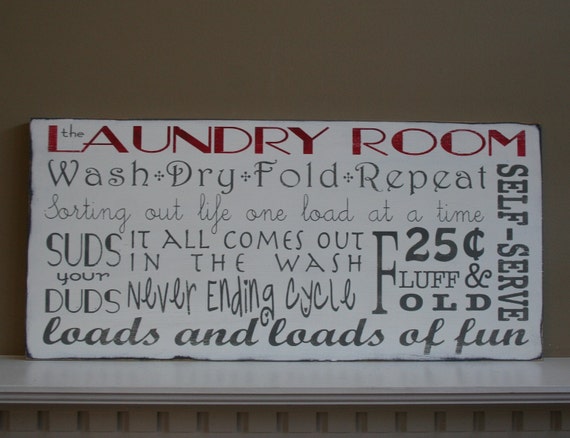 the LAUNDRY ROOM
Wash Dry Fold Repeat
Sorting out life one load at a time
SUDS your DUDS
IT ALL COMES OUT
IN THE WASH
Never Ending Cycle
25¢
FLUFF &
FOLD
SELF-SERVE
loads and loads of fun